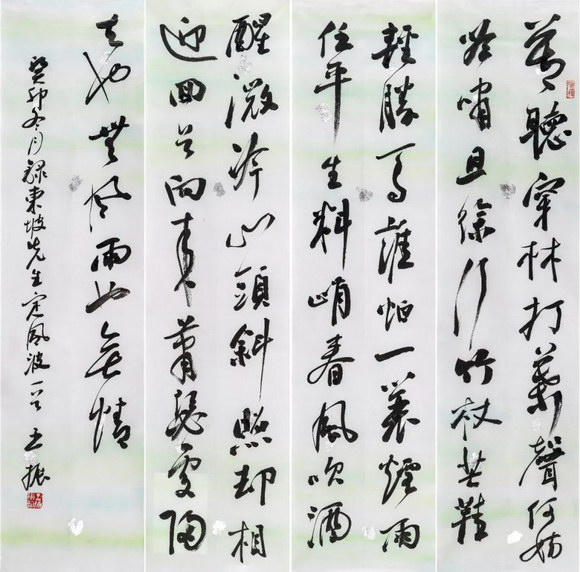 莫聽穿林打葉聲何妨
吟嘯且徐行竹杖芒鞵
輕勝馬誰怕一蓑煙雨
任平生料峭春風吹酒
醒微冷山頭斜照却相
迎回首向來蕭瑟處歸
去也無風雨也無情
癸卯冬月録東坡先生定風波一首 振